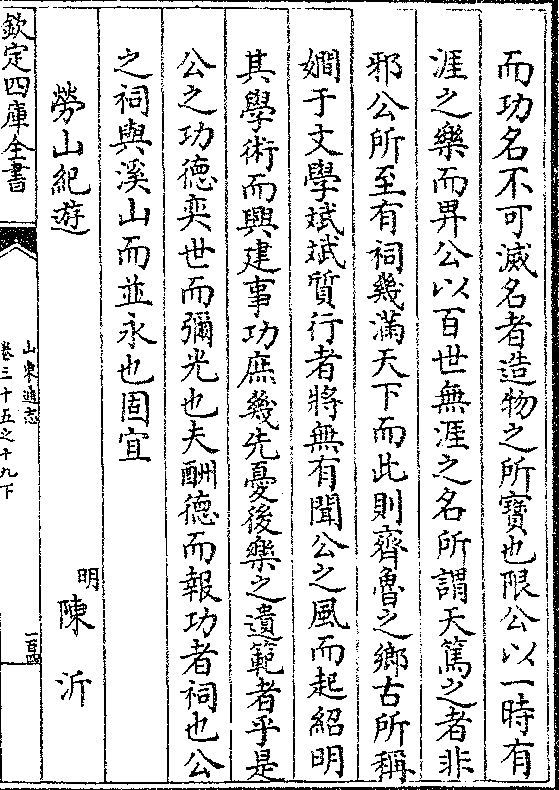 而功名不可滅名者造物之所寶也限公以一時有
涯之樂而畀公以百世無涯之名所謂天篤之者非
邪公所至有祠幾滿天下而此則齊魯之鄉古所稱
嫺于文學斌斌質行者將無有聞公之風而起紹明
其學術而興建事功庶幾先憂後樂之遺範者乎是
公之功德奕世而彌光也夫酬德而報功者祠也公
之祠與溪山而並永也固宜
勞山紀遊
明 陳沂
欽定四庫全書
山東通志
卷三十五之十九下